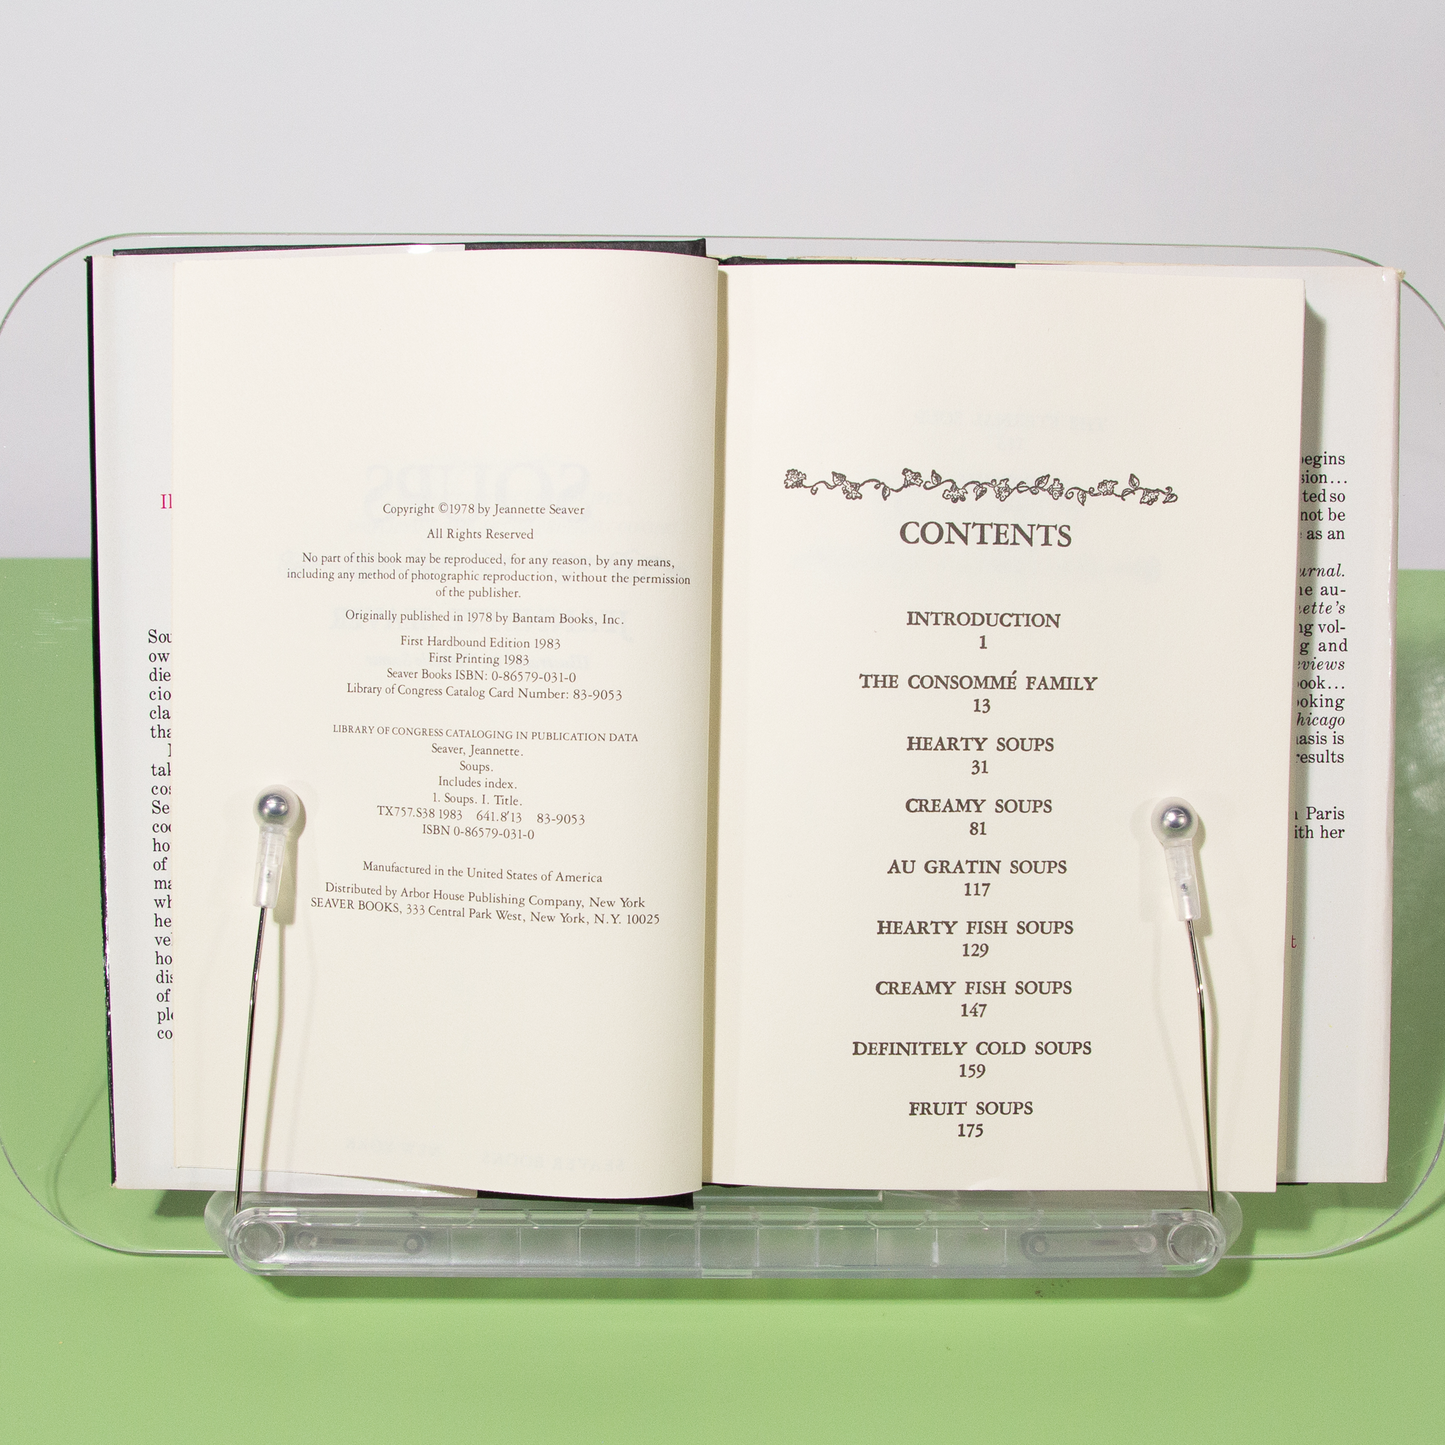 Il
Sou
ow
die
cio
cla
tha
tak
cos
Se
coo
ho
of
ma
wh
he
ve
ho
dis
of
ple
co
Copyright ©1978 by Jeannette Seaver
All Rights Reserved
No part of this book may be reproduced, for any reason, by any means,
including any method of photographic reproduction, without the permission
of the publisher.
Originally published in 1978 by Bantam Books, Inc.
First Hardbound Edition 1983
First Printing 1983
Seaver Books ISBN: 0-86579-031-0
Library of Congress Catalog Card Number: 83-9053
LIBRARY OF CONGRESS CATALOGING IN PUBLICATION DATA
Seaver, Jeannette.
Soups.
Includes index.
1. Soups. I. Title.
TX757.S38 1983 641.8'13 83-9053
ISBN 0-86579-031-0
Manufactured in the United States of America
Distributed by Arbor House Publishing Company, New York
SEAVER BOOKS, 333 Central Park West, New York, N.Y. 10025
CONTENTS
INTRODUCTION
1
THE CONSOMMÉ FAMILY
13
HEARTY SOUPS
31
CREAMY SOUPS
81
AU GRATIN SOUPS
117
HEARTY FISH SOUPS
129
CREAMY FISH SOUPS
147
DEFINITELY COLD SOUPS
159
FRUIT SOUPS
175
egins
sion...
ted so
not be
as an
urnal.
he au-
nette's
ng vol-
g and
eviews
book...
ooking
hicago
hasis is
results
n Paris
ith her
t